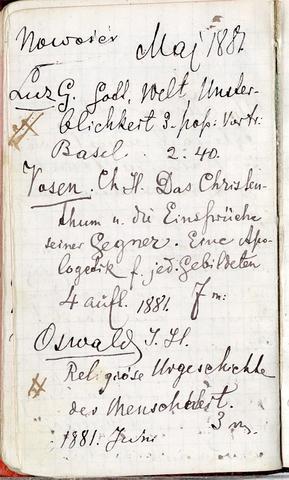 Nowości Maj 1881
Luz G. Gott, Welt, Unster-
blichkeit 3. pop: Vortr:
Basel . 2: 40.
Vosen. Ch. H. Das Christen-
thum u. die Einsprüche
seiner Gegner. Eine Apo-
logetik f. jed. Gebildeten
4 aufl. 1881. 7 m:
Oswald J. H.
Religiöse Urgeschichte
der Menschheit.
1881. 3 m.